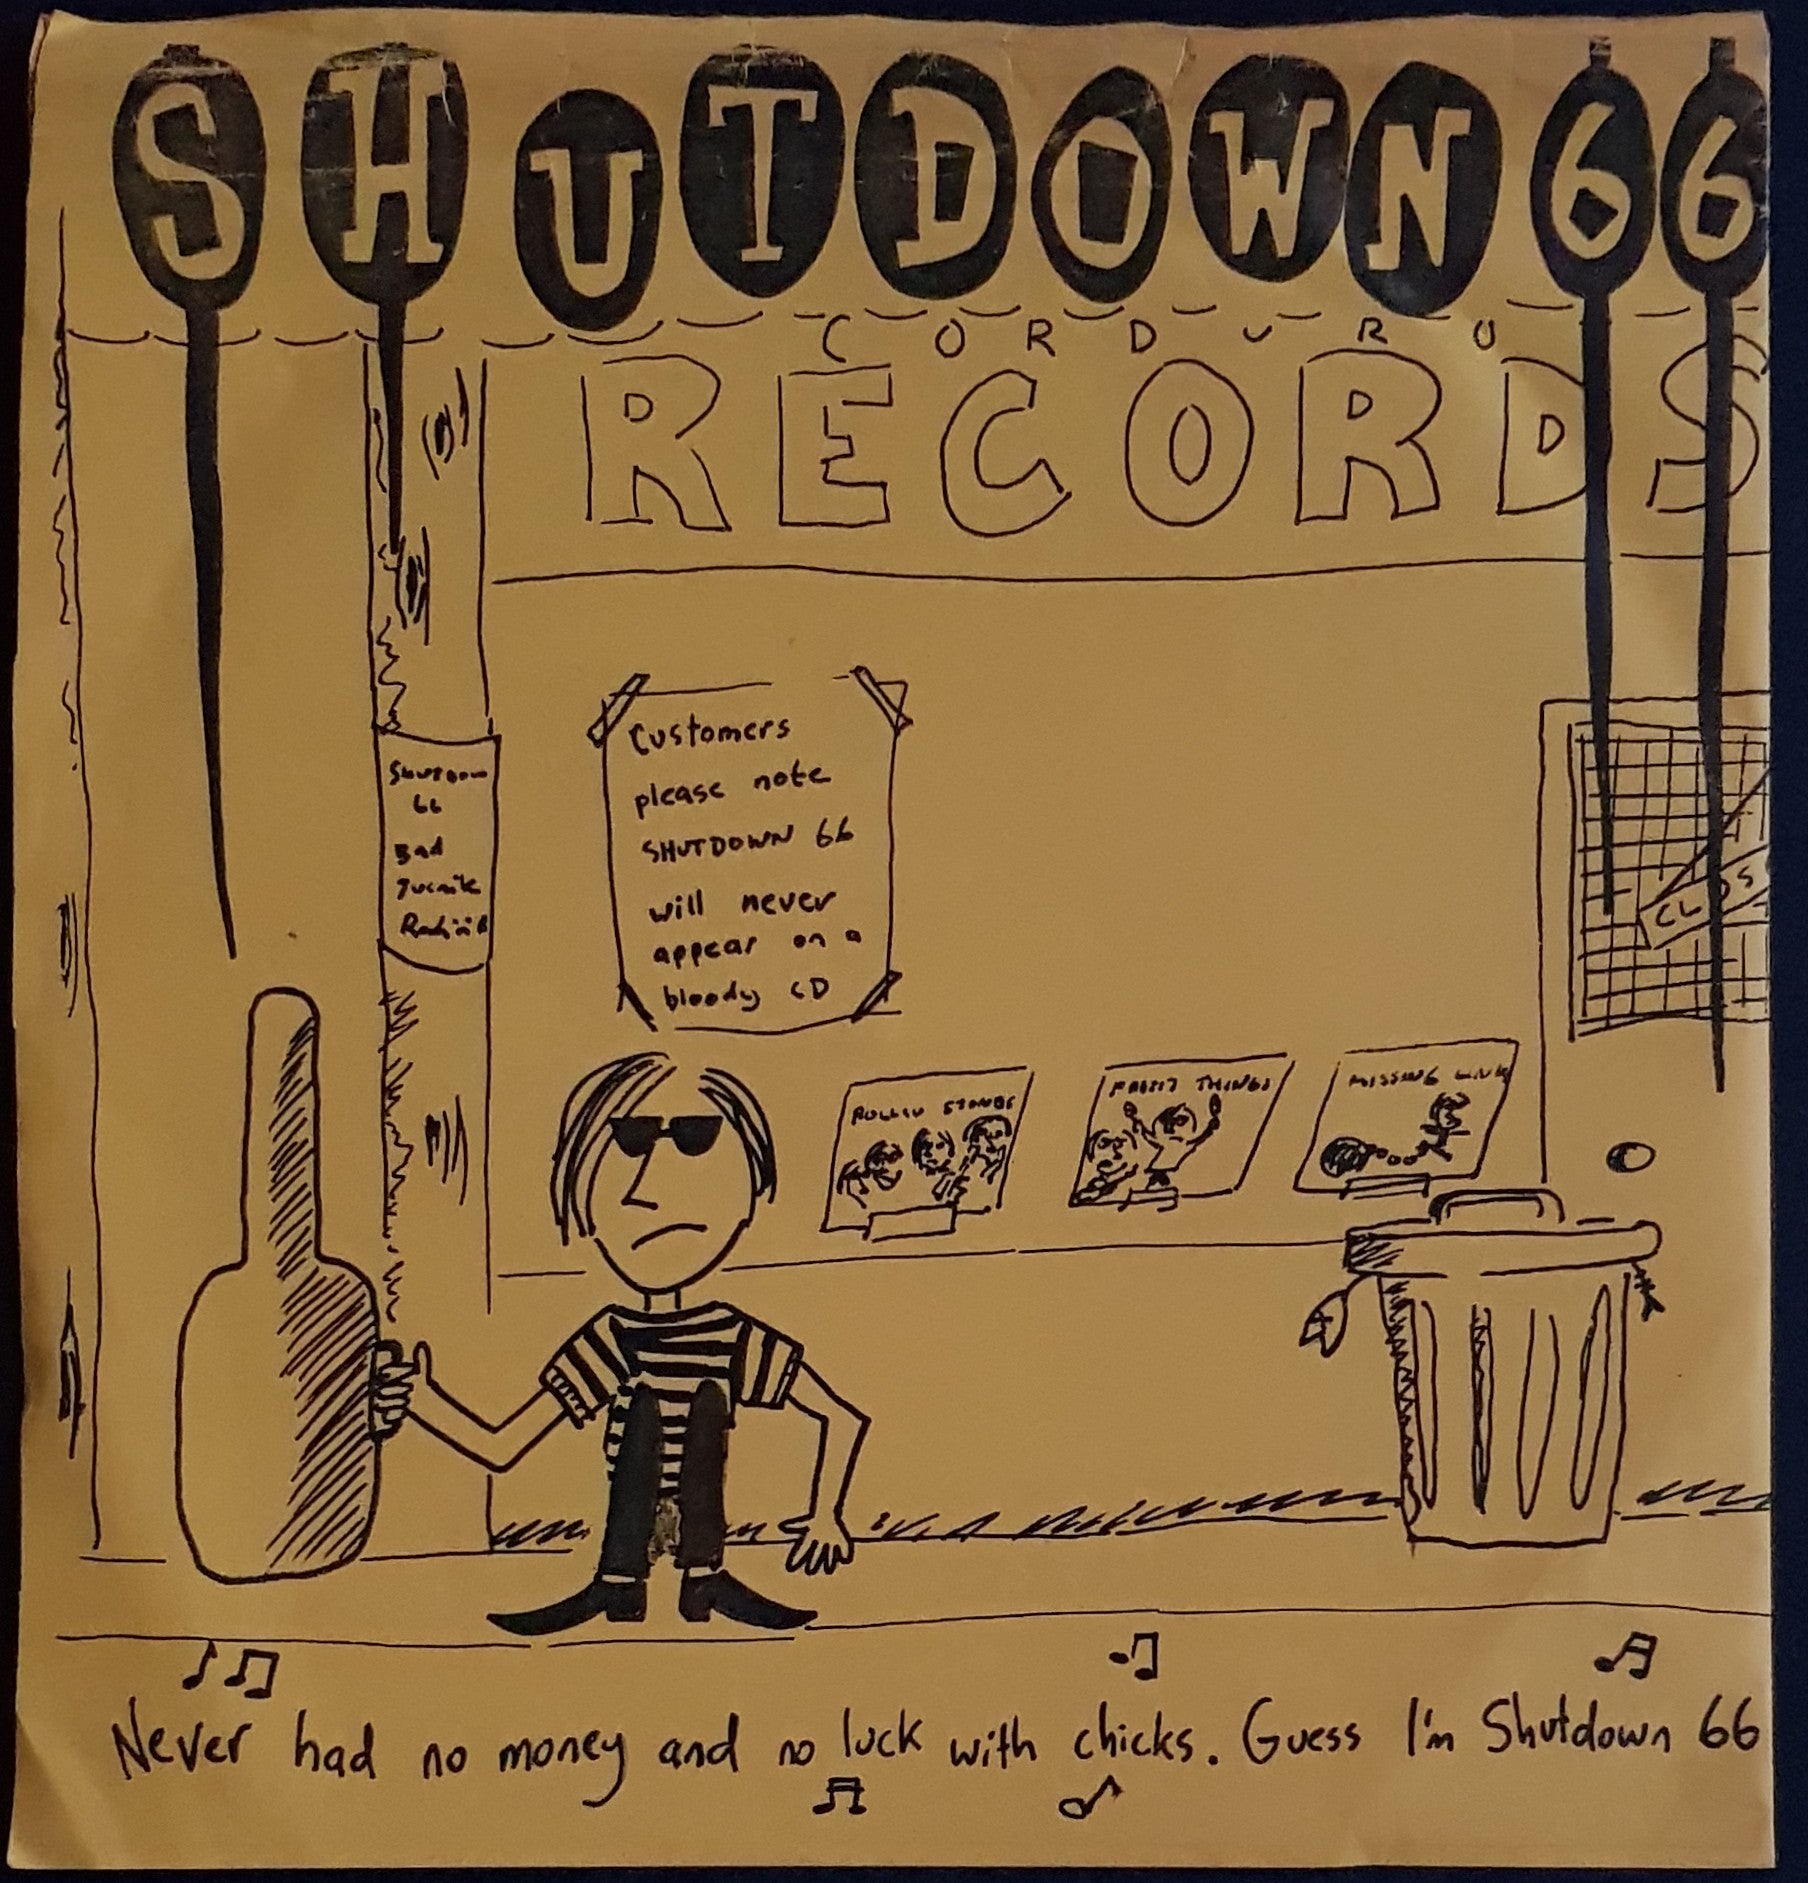 SHUTDOWN 66
CORDURO
RECORDS
Shutdown
66
Bad
Customers
please note
SHUTDOWN 66
will never
appear on a
bloody CD
CLOS
ROLLIN STONES
PRETTY THINGS
MISSING LINKS
Never had no money and no luck with chicks. Guess I'm Shutdown 66